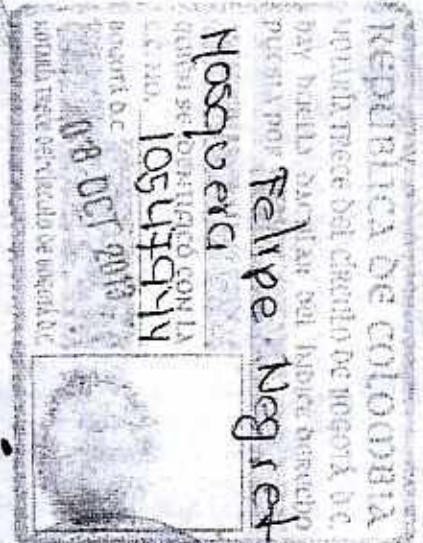 REPUBLICA DE COLOMBIA
NOTARIA TRECE DEL CIRCULO DE BOGOTÁ D.C.
DAY HUELLA DACTILAR DEL INDICE DERECHO
PUESTA POR
Felipe Negret
Mosquera
QUIEN SE IDENTIFICO CON LA
C.C. NO.
BOGOTÁ D.C.
08 OCT 2013
NOTARIA TRECE DEL CIRCULO DE BOGOTÁ D.C.